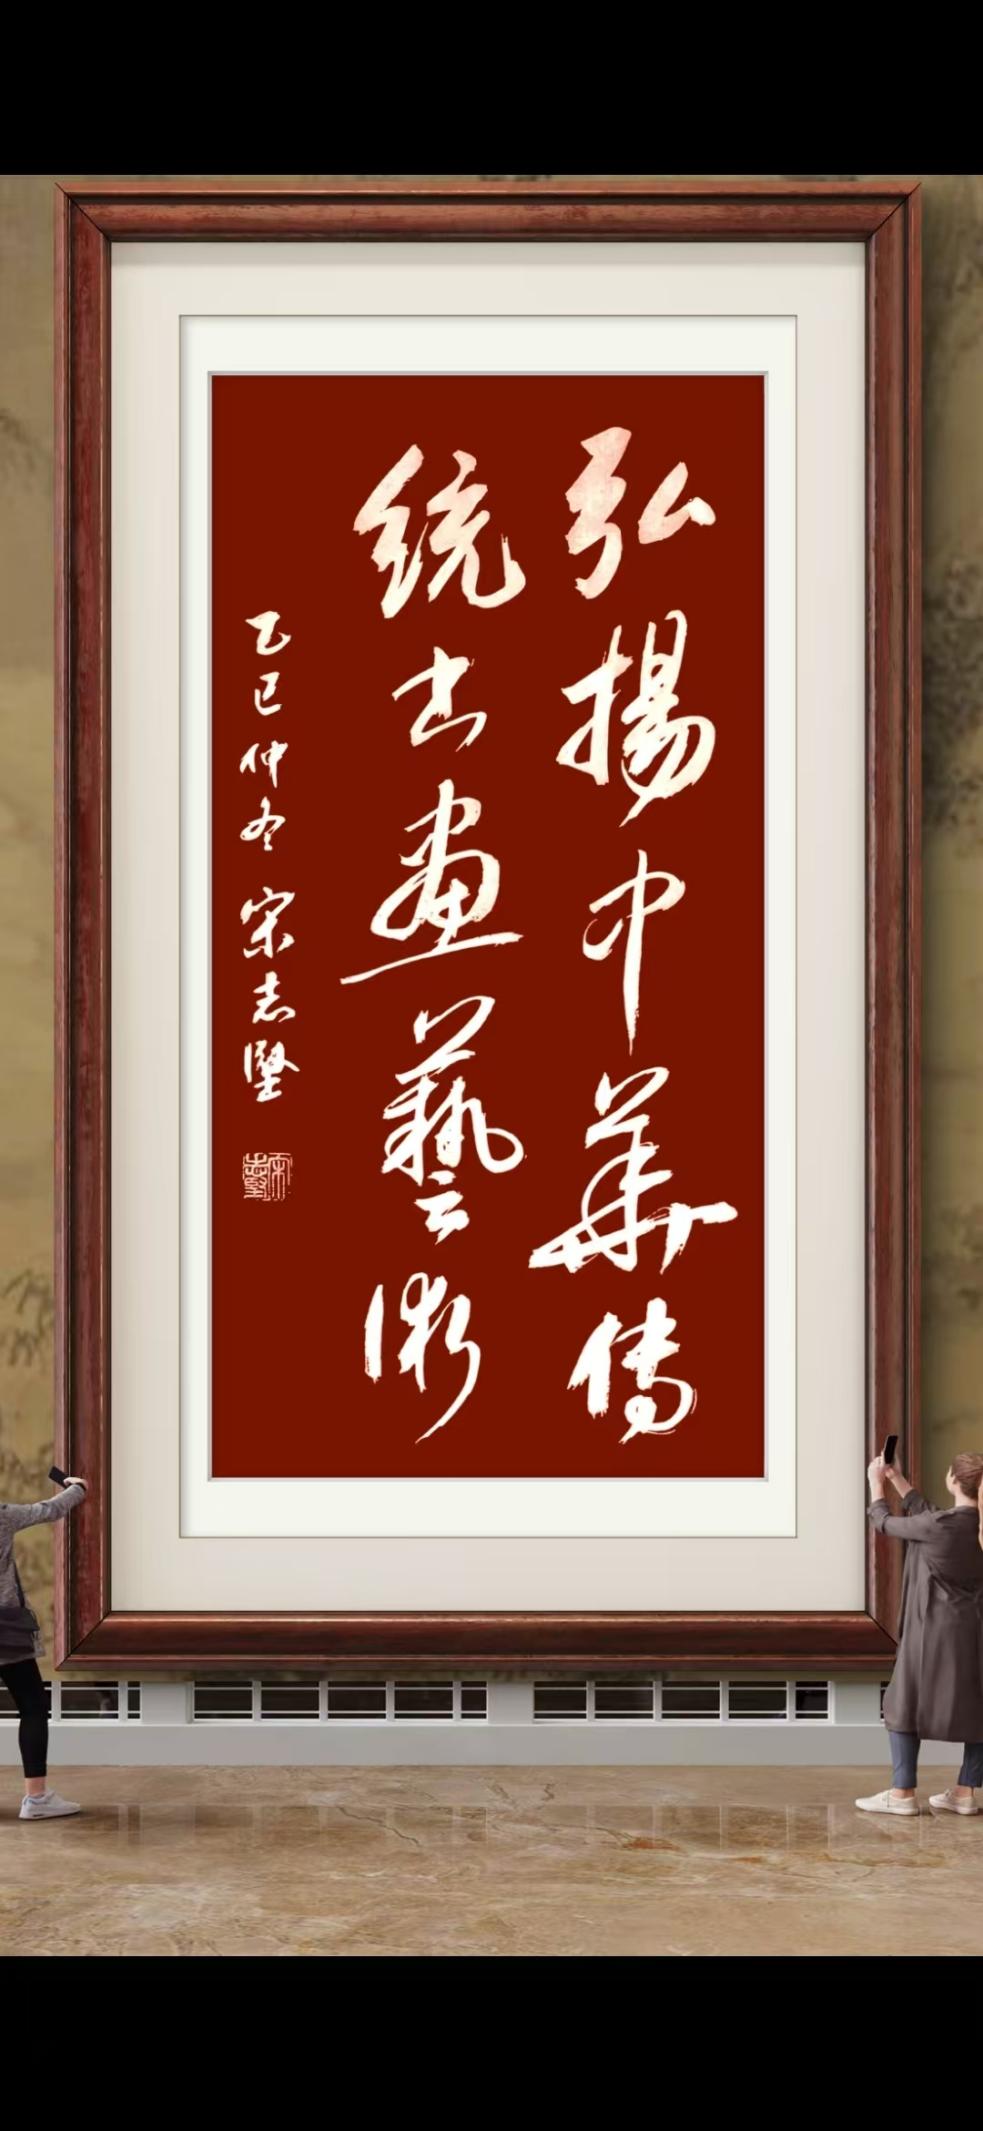 弘揚中華傳
統书畫藝術
乙巳仲冬 宋志堅